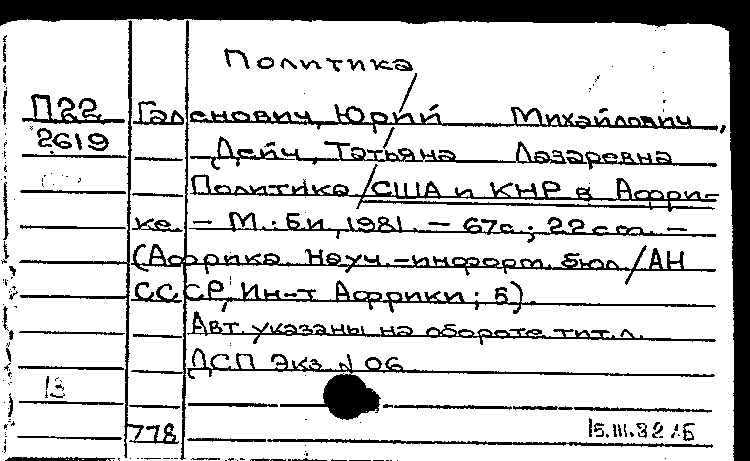 Политика
П22 Галенович, Юрий Михайлович,
2619 Дейч, Татьяна Лазаревна
Политика / США и КНР в Афри-
ке. - М.: Б.и., 1981. - 67с.; 22 см. -
(Африка. Науч.-информ. бюл. / АН
СССР, Ин-т Африки; 5).
Авт. указаны на обороте тит. л.
ДСП Экз. N 06
13
778 15.III.82 1Б